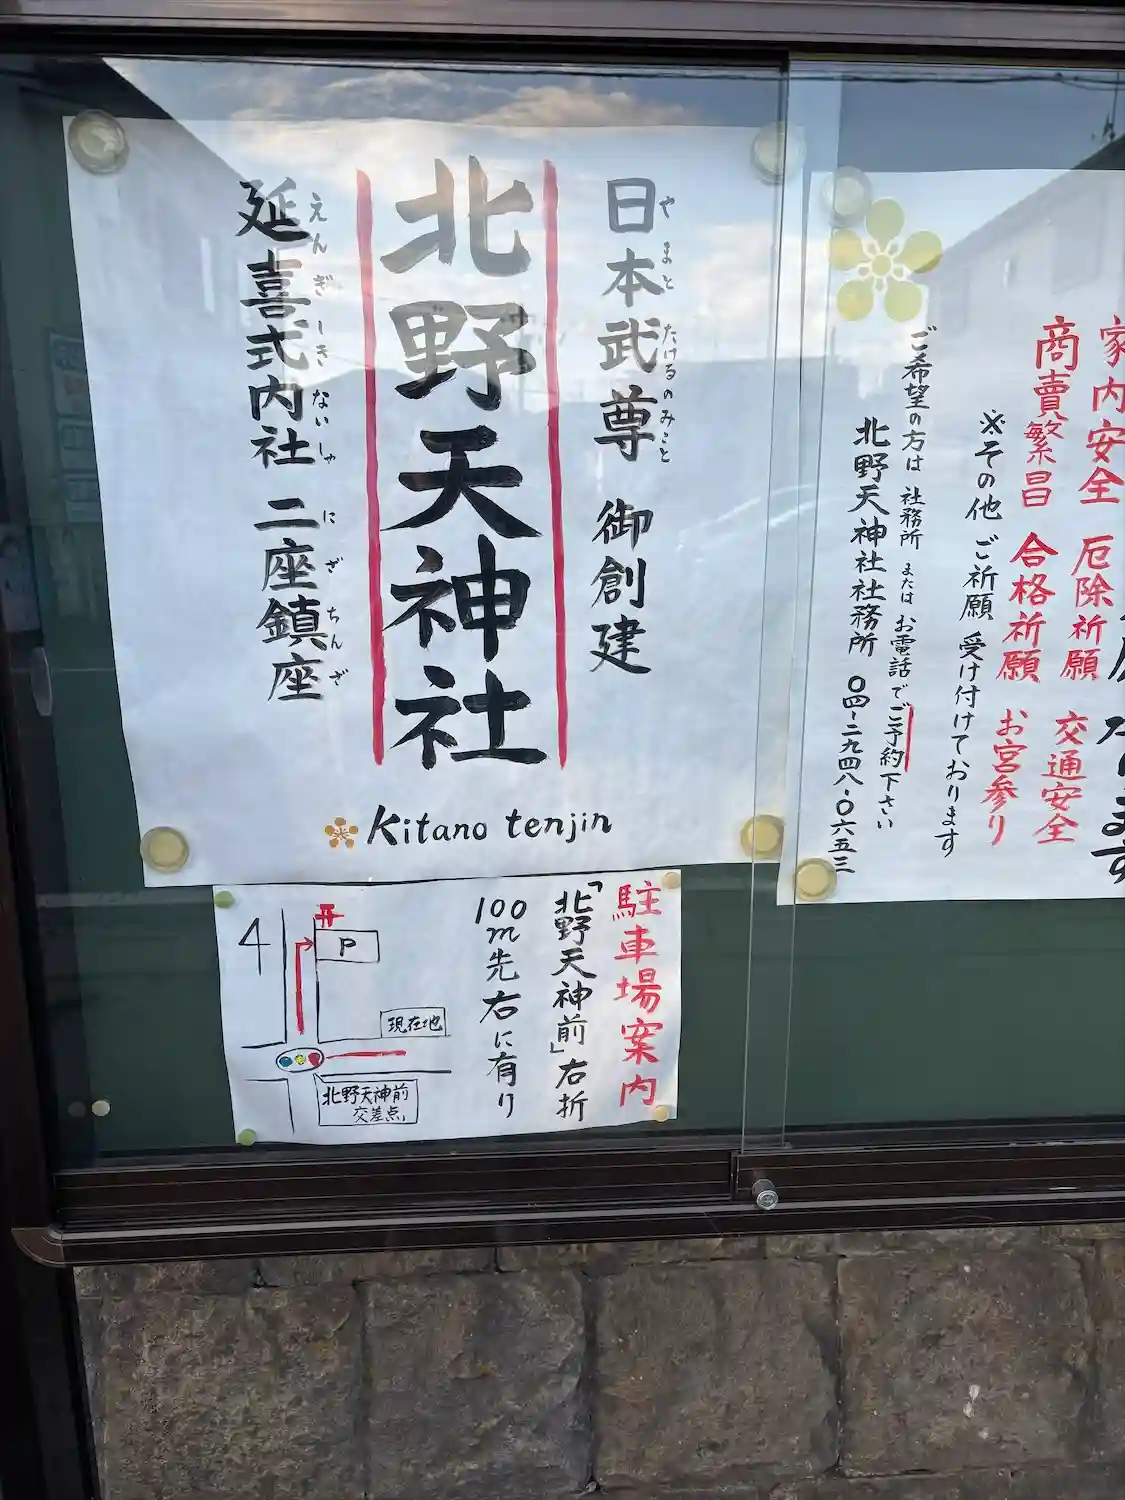 日本武尊 御創建
やまとたけるのみこと
北野天神社
延喜式内社 二座鎮座
えんぎしきないしゃ にざちんざ
Kitano tenjin
駐車場案内
「北野天神前」右折
100m先右に有り
P
現在地
北野天神前
交差点
家内安全 厄除祈願 交通安全
商賣繁昌 合格祈願 お宮参り
※その他 ご祈願 受け付けております
ご希望の方は 社務所 または お電話でご予約下さい
北野天神社社務所 〇四-二九四八-〇六五三